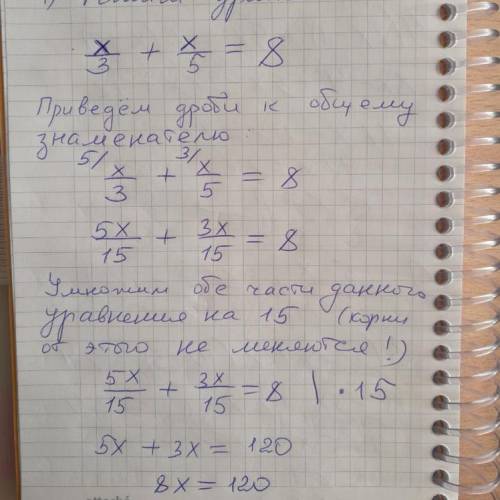 x/3 + x/5 = 8
Приведём дроби к общему
знаменателю:
5/ x/3 + 3/ x/5 = 8
5x/15 + 3x/15 = 8
Умножим обе части данного
уравнения на 15 (корни
от этого не меняются!)
5x/15 + 3x/15 = 8 | · 15
5x + 3x = 120
8x = 120